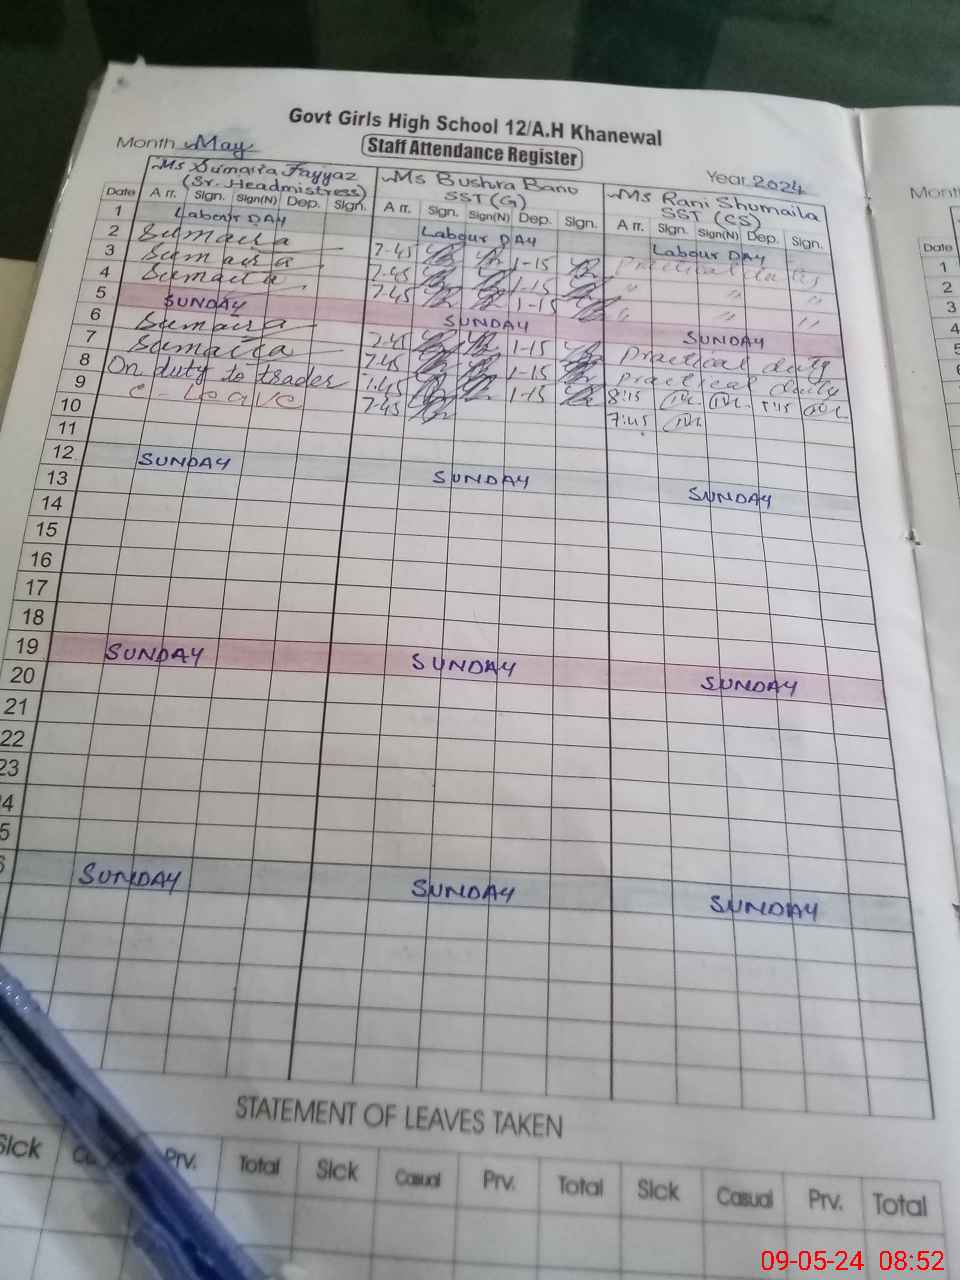 Govt Girls High School 12/A.H Khanewal
Month May Staff Attendance Register Year 2024
Ms Sumaira Fayyaz Ms Bushra Bano Ms Rani Shumaila
(Sr. Headmistress) SST (G) SST (CS)
Date Arr. Sign. Sign(N) Dep. Sign. Arr. Sign. Sign(N) Dep. Sign. Arr. Sign. Sign(N) Dep. Sign.
1 Labour DAY Labour DAY Labour DAY
2 Sumaira 7-45 1-15 Practical duties
3 Sumaira 7-45 1-15 " " "
4 Sumaira 7-45 1-15 " " "
5 SUNDAY SUNDAY SUNDAY
6 Sumaira 7-45 1-15 Practical duty
7 Sumaira 7-45 1-15 Practical duty
8 On duty to trades 7-45 1-15 8:15 1:15
9 C-Leave 7-45 7:45
10
11
12 SUNDAY SUNDAY SUNDAY
13
14
15
16
17
18
19 SUNDAY SUNDAY SUNDAY
20
21
22
23
4
5
6 SUNDAY SUNDAY SUNDAY
STATEMENT OF LEAVES TAKEN
Sick Prv. Total Sick Casual Prv. Total Sick Casual Prv. Total
Month
Date
1
2
3
4
5
09-05-24 08:52